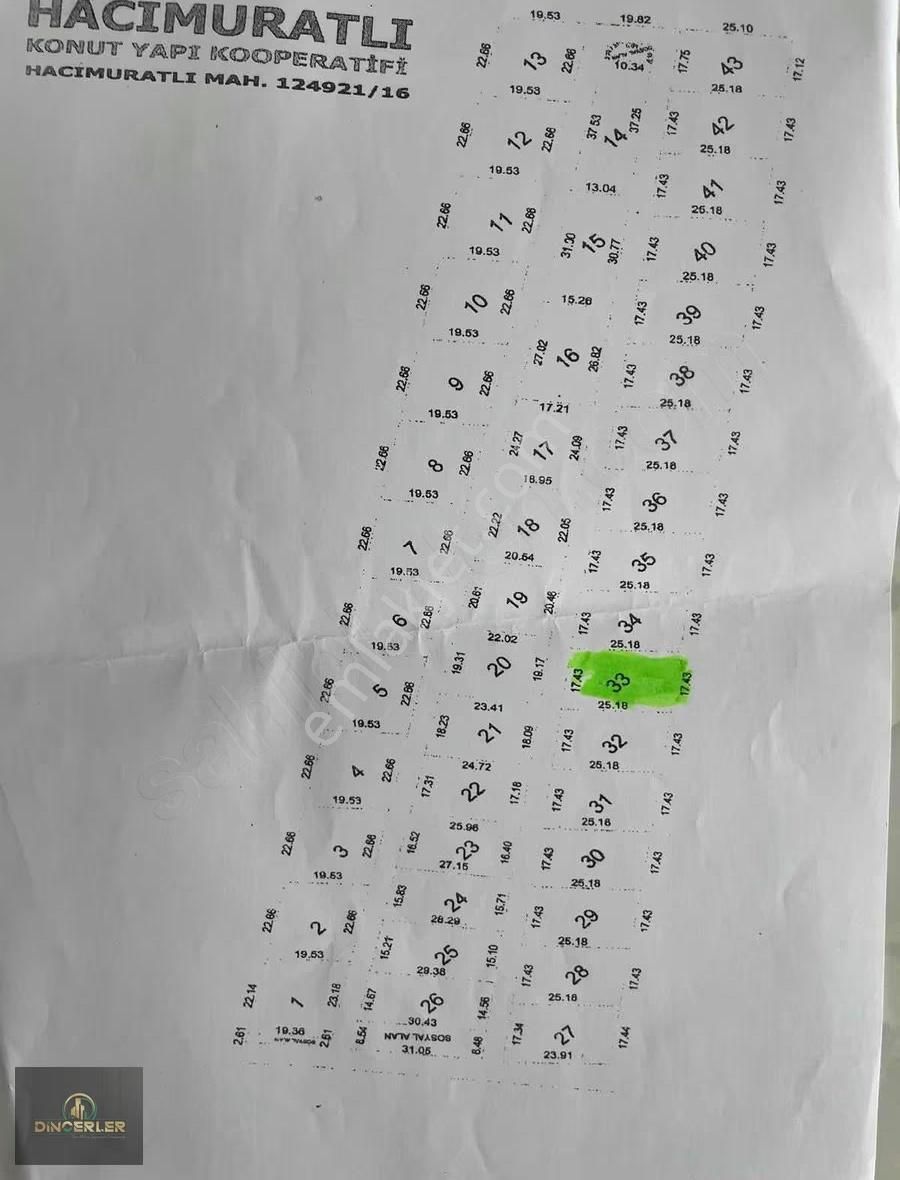 HACIMURATLI
KONUT YAPI KOOPERATİFİ
HACIMURATLI MAH. 124921/16
19.53 19.82 25.10
22.66 13 22.66 10.34 17.75 43 17.12
19.53 25.18
22.66 12 22.66 37.53 14 37.25 17.43 42 17.43
25.18
19.53 13.04 17.43 41 17.43
25.18
22.66 11 22.66 31.30 15 30.77 17.43 40 17.43
19.53 25.18
22.66 10 22.66 15.26 17.43 39 17.43
19.53 25.18
22.66 9 22.66 27.02 16 26.82 17.43 38 17.43
19.53 17.21 25.18
22.66 8 22.66 24.27 17 24.09 17.43 37 17.43
19.53 18.95 25.18
22.66 7 22.66 22.22 18 22.05 17.43 36 17.43
19.53 20.64 25.18
17.43 35 17.43
25.18
22.66 6 22.66 20.61 19 20.46 17.43 34 17.43
19.53 22.02 25.18
22.66 5 22.66 19.31 20 19.17 17.43 33 17.43
19.53 23.41 25.18
22.66 4 22.66 18.23 21 18.09 17.43 32 17.43
24.72 25.18
19.53 17.31 22 17.18 17.43 31 17.43
25.96 25.18
22.66 3 22.66 16.52 23 16.40 17.43 30 17.43
19.53 27.15 25.18
22.66 2 22.66 15.83 24 15.71 17.43 29 17.43
28.29 25.18
19.53 15.21 25 15.10 17.43 28 17.43
29.38 25.18
22.14 1 23.18 14.67 26 14.56 17.34 27 17.44
30.43
2.61 19.36 2.61 6.54 SOSYAL ALAN 6.48 23.91
SOSYAL ALAN 31.05
emlakjet.com
DİNÇERLER